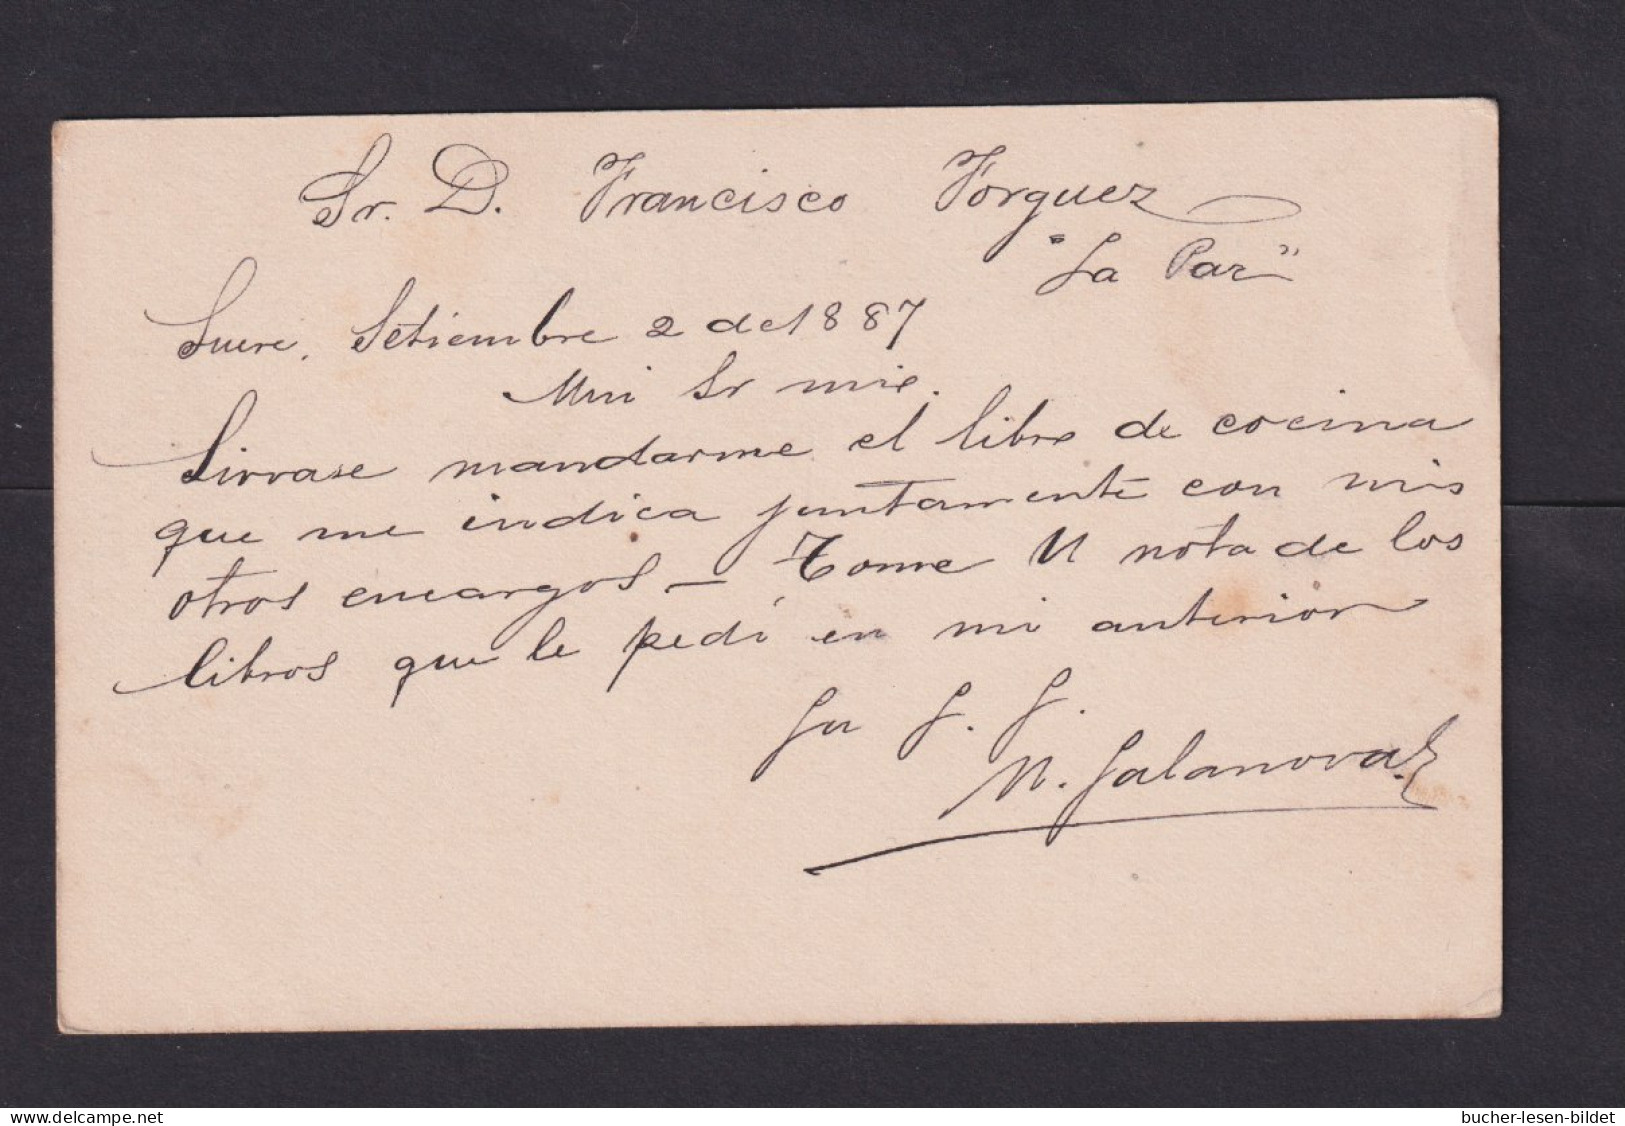 Sr. D. Francisco Forguez
"La Paz"
Sucre, Setiembre 2 de 1887
Mui Sr mio.
Sirvase mandarme el libro de cocina
que me indica juntamente con mis
otros encargos — Tome U nota de los
libros que le pedí en mi anterior
Su S. S.
M. Salanova
delcampe.net
bucher-lesen-bildet